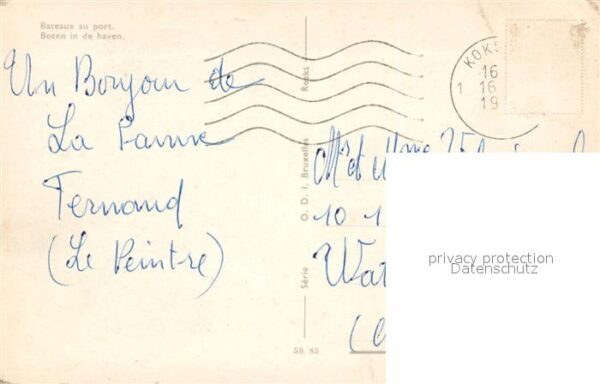 Bateaux au port.
Boten in de haven.
Un Bonjour de
La Panne
Fernand
(Le Peintre)
Série O. D. I. Bruxelles Reeks
58 85
KOKS
16
1 16
19
Mr et Mme
10 1
Wat
privacy protection
Datenschutz